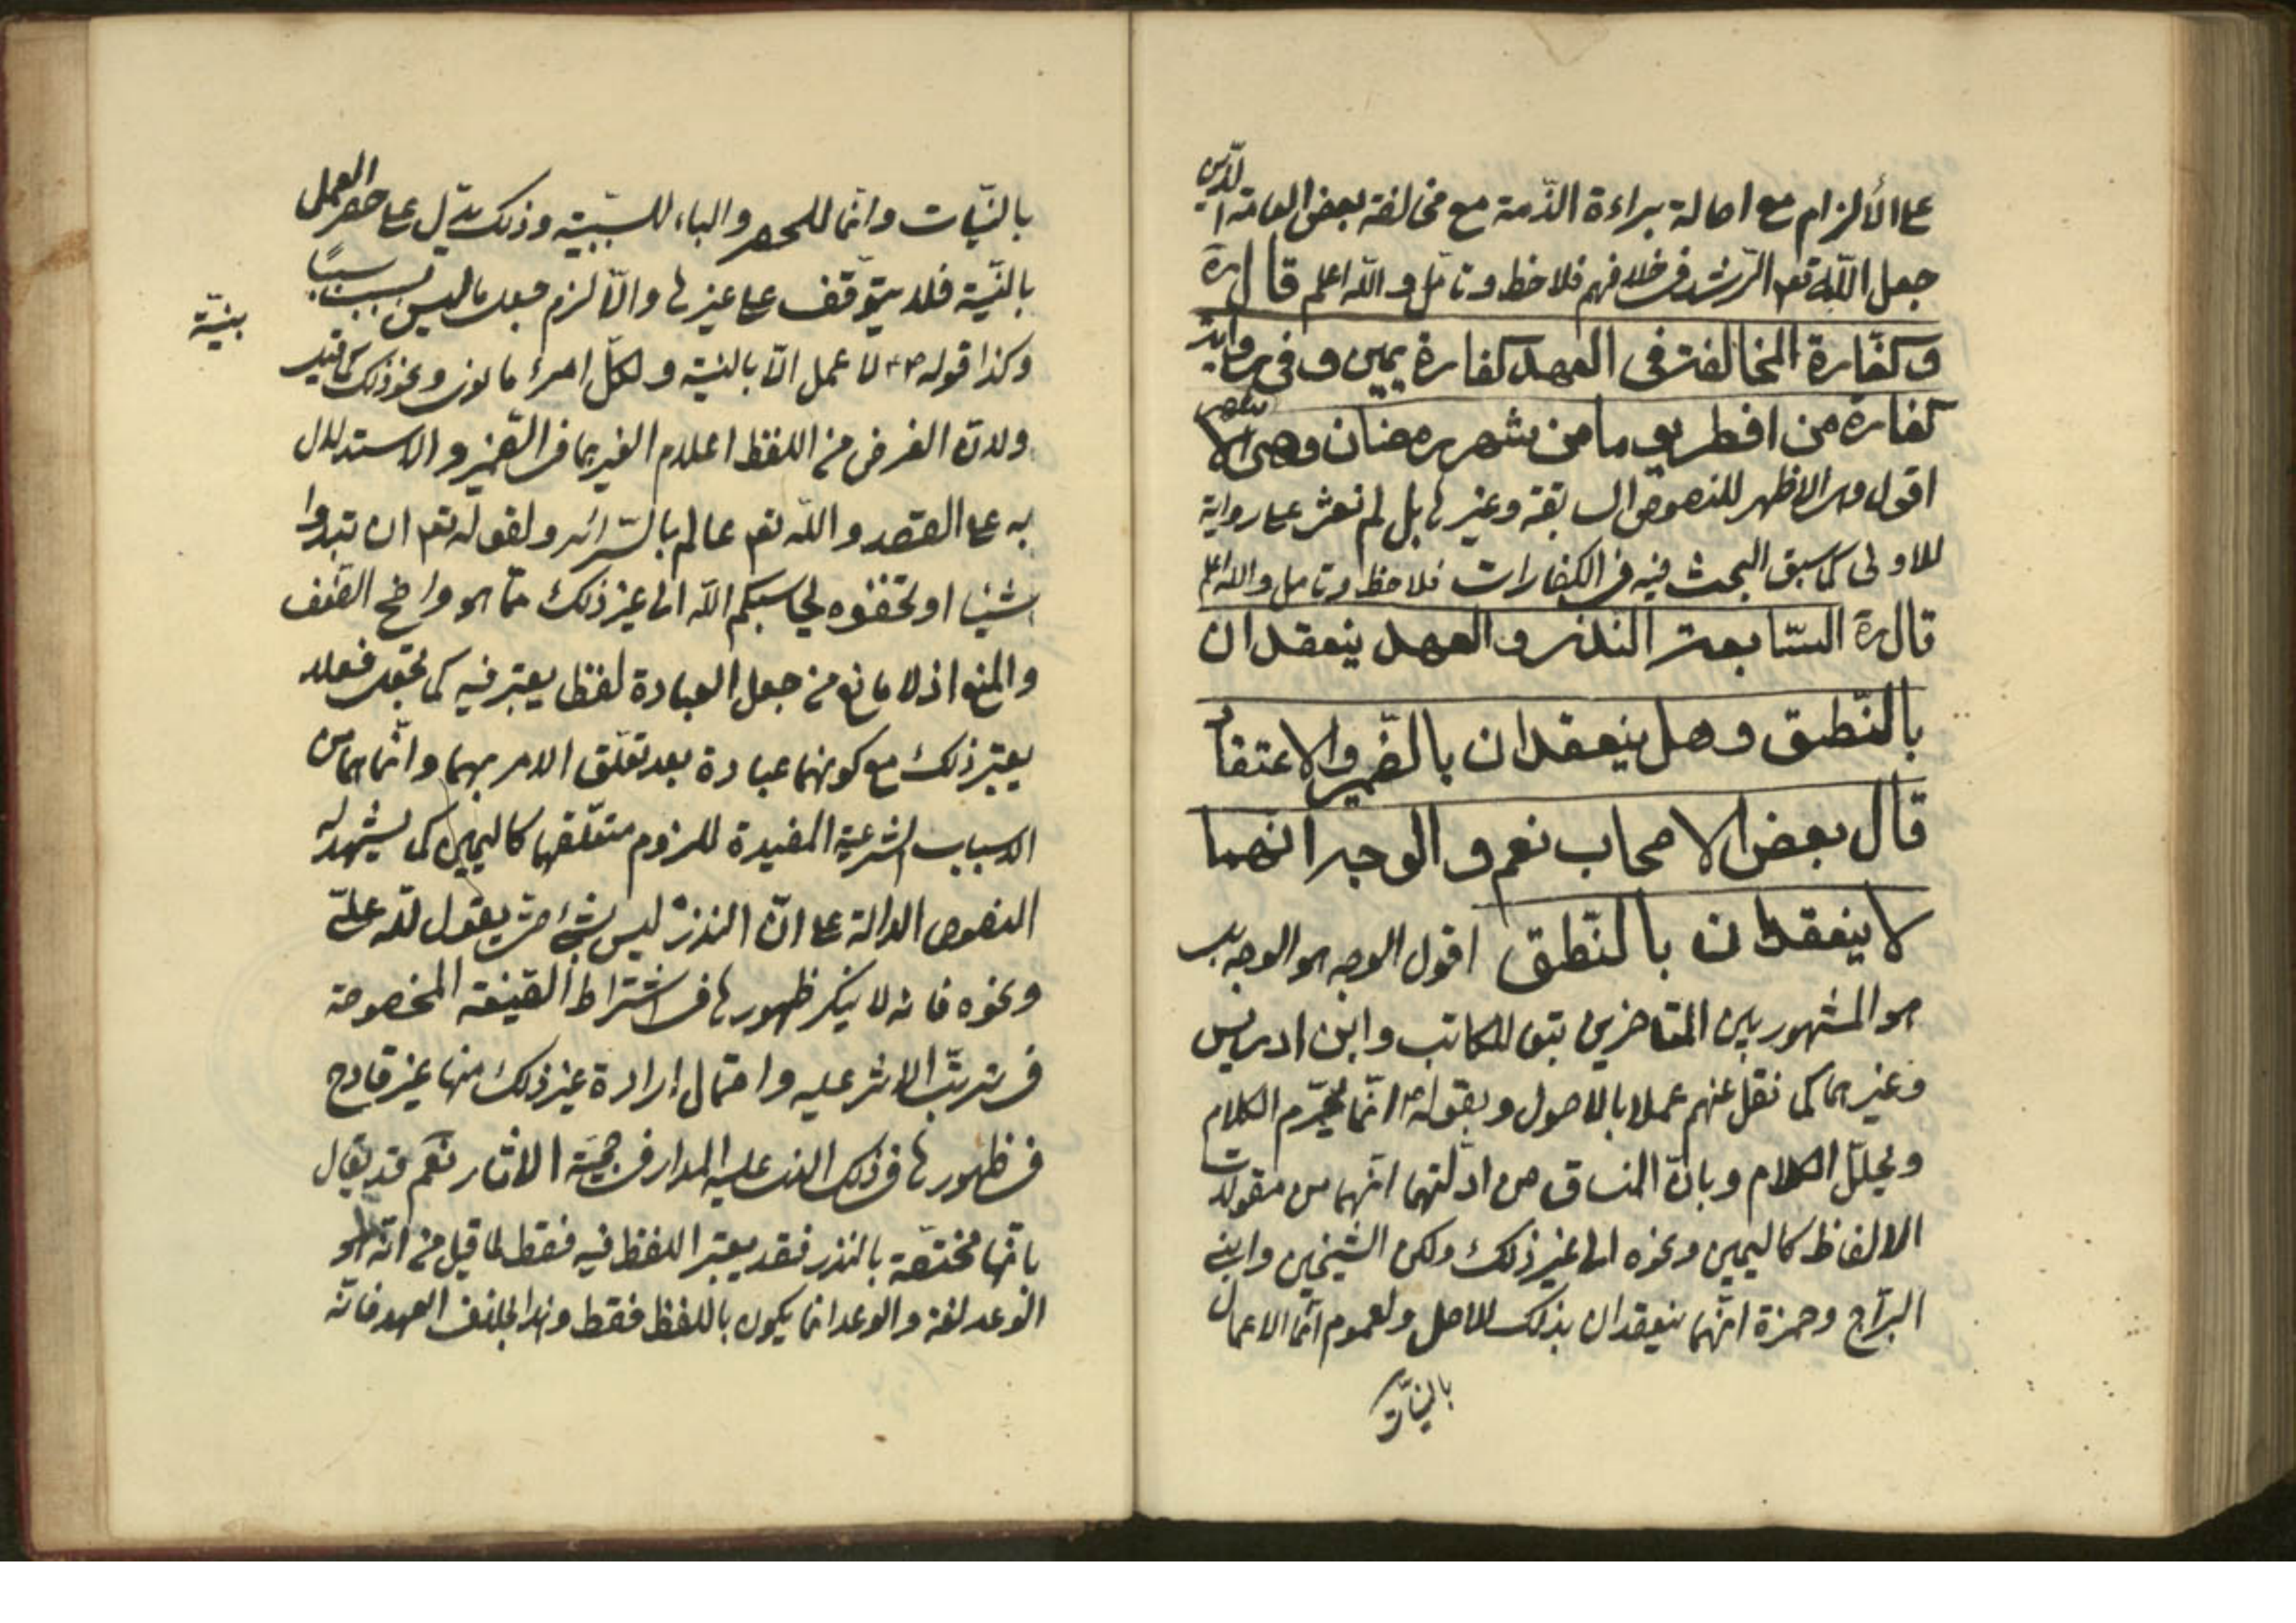 على الألزام مع اصالة براءة الذّمة مع مخالفة بعض العامة الذين
جعل اللّه تعہ الرّشد فى خلافهم فلاحظ وتأمّل واللّه اعلم قال ره
وكفّارة المخالفة فى العهد كفارة يمين وفى رواية
كفارة من افطر يوما من شهر رمضان وهى الاشهر
اقول وهى الاظهر للنصوص السابقة وغيرها بل لم نعثر على رواية
للاولى كما سبق البحث فيه فى الكفارات فلاحظ وتامل واللّه اعلم
قال ره السّابعة النذر والعهد ينعقدان
بالنّطق وهل ينعقدان بالضّمير والاعتقاد
قال بعض الاصحاب نعم والوجه انهما
لا ينعقدان بالنّطق اقول الوجه هو الوجه بل
هو المشهور بين المتاخرين بتو للكاتب وابن ادريس
وغيرهما كما نقل عنهم عملا بالاصول وبقوله ص انّما يحرّم الكلام
ويحلّل الكلام وبانّ المنساق من ادلّتهما انّهما من مقولات
الالفاظ كاليمين ونحوه الى غير ذلك ولكن الشّيخين وابنى
البرّاج وحمزة انّهما ينعقدان بذلك للاصل ولعموم انّما الاعمال
بالنيّات
بالنّيّات وانّما للحصر والباء للسّببيّة وذلك يدّل على حصر العمل
بالنّيّة فلا يتوّقف على غيرها والّا لزم جعل ما ليس بسبب سببًا
وكذا قوله لا عمل الّا بالنيّة ولكلّ امرئ ما نوى ونحو ذلك كما قيل
بنيّة
ولانّ الغرض من اللفظ اعلام الغير بما فى الضّمير والاستدلال
به على القصد واللّه تعہ عالم بالسّرائر ولقوله تعہ ان تبدوا
شيئا او تخفوه يحاسبكم اللّه الى غير ذلك ممّا هو واضح الضّعف
والمنع اذ لا مانع من جعل العبادة لفظا يعتبر فيه كما تجعل فعلا
يعتبر ذلك مع كونهما عبادة بعد تعلّق الامر بهما وانّما هما من
الاسباب الشرعيّة المفيدة للزوم متعلّقها كاليمين كما يشهد له
النصوص الدالة على انّ النذر ليس بشئ حتى يقول للّه علىّ
ونحوه فانه لا ينكر ظهورها فى اشتراط الصّيغة المخصوصة
فى ترتّب الاثر عليه واحتمال إرادة غير ذلك منها غير قادح
فى ظهورها فى ذلك الذى عليه المدار فى حجيّة الاثار نعم قد يقال
بانّها مختصّة بالنذر فقد يعتبر اللفظ فيه فقط لما قيل من انّه هو
الوعد لغة والوعد انما يكون باللفظ فقط وهذا بخلاف العهد فانّه